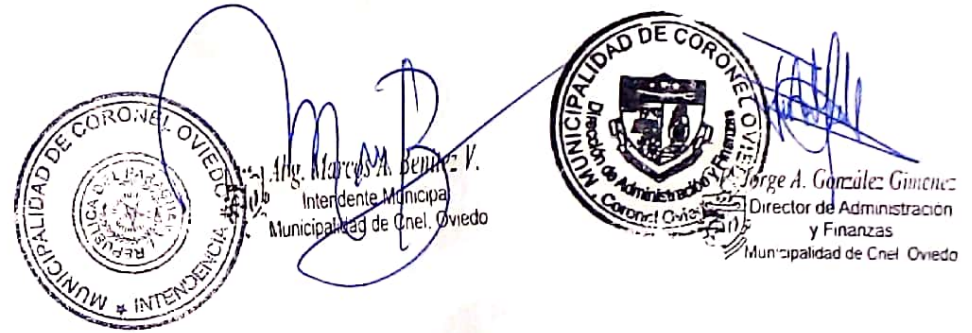 MUNICIPALIDAD DE CORONEL OVIEDO
REPUBLICA DEL PARAGUAY
* INTENDENCIA *
Abg. Marcos A. Benítez V.
Intendente Municipal
Municipalidad de Cnel. Oviedo
MUNICIPALIDAD DE CORONEL OVIEDO
Dirección de Administración y Finanzas
Coronel Oviedo
Jorge A. González Giménez
Director de Administración
y Finanzas
Municipalidad de Cnel Oviedo